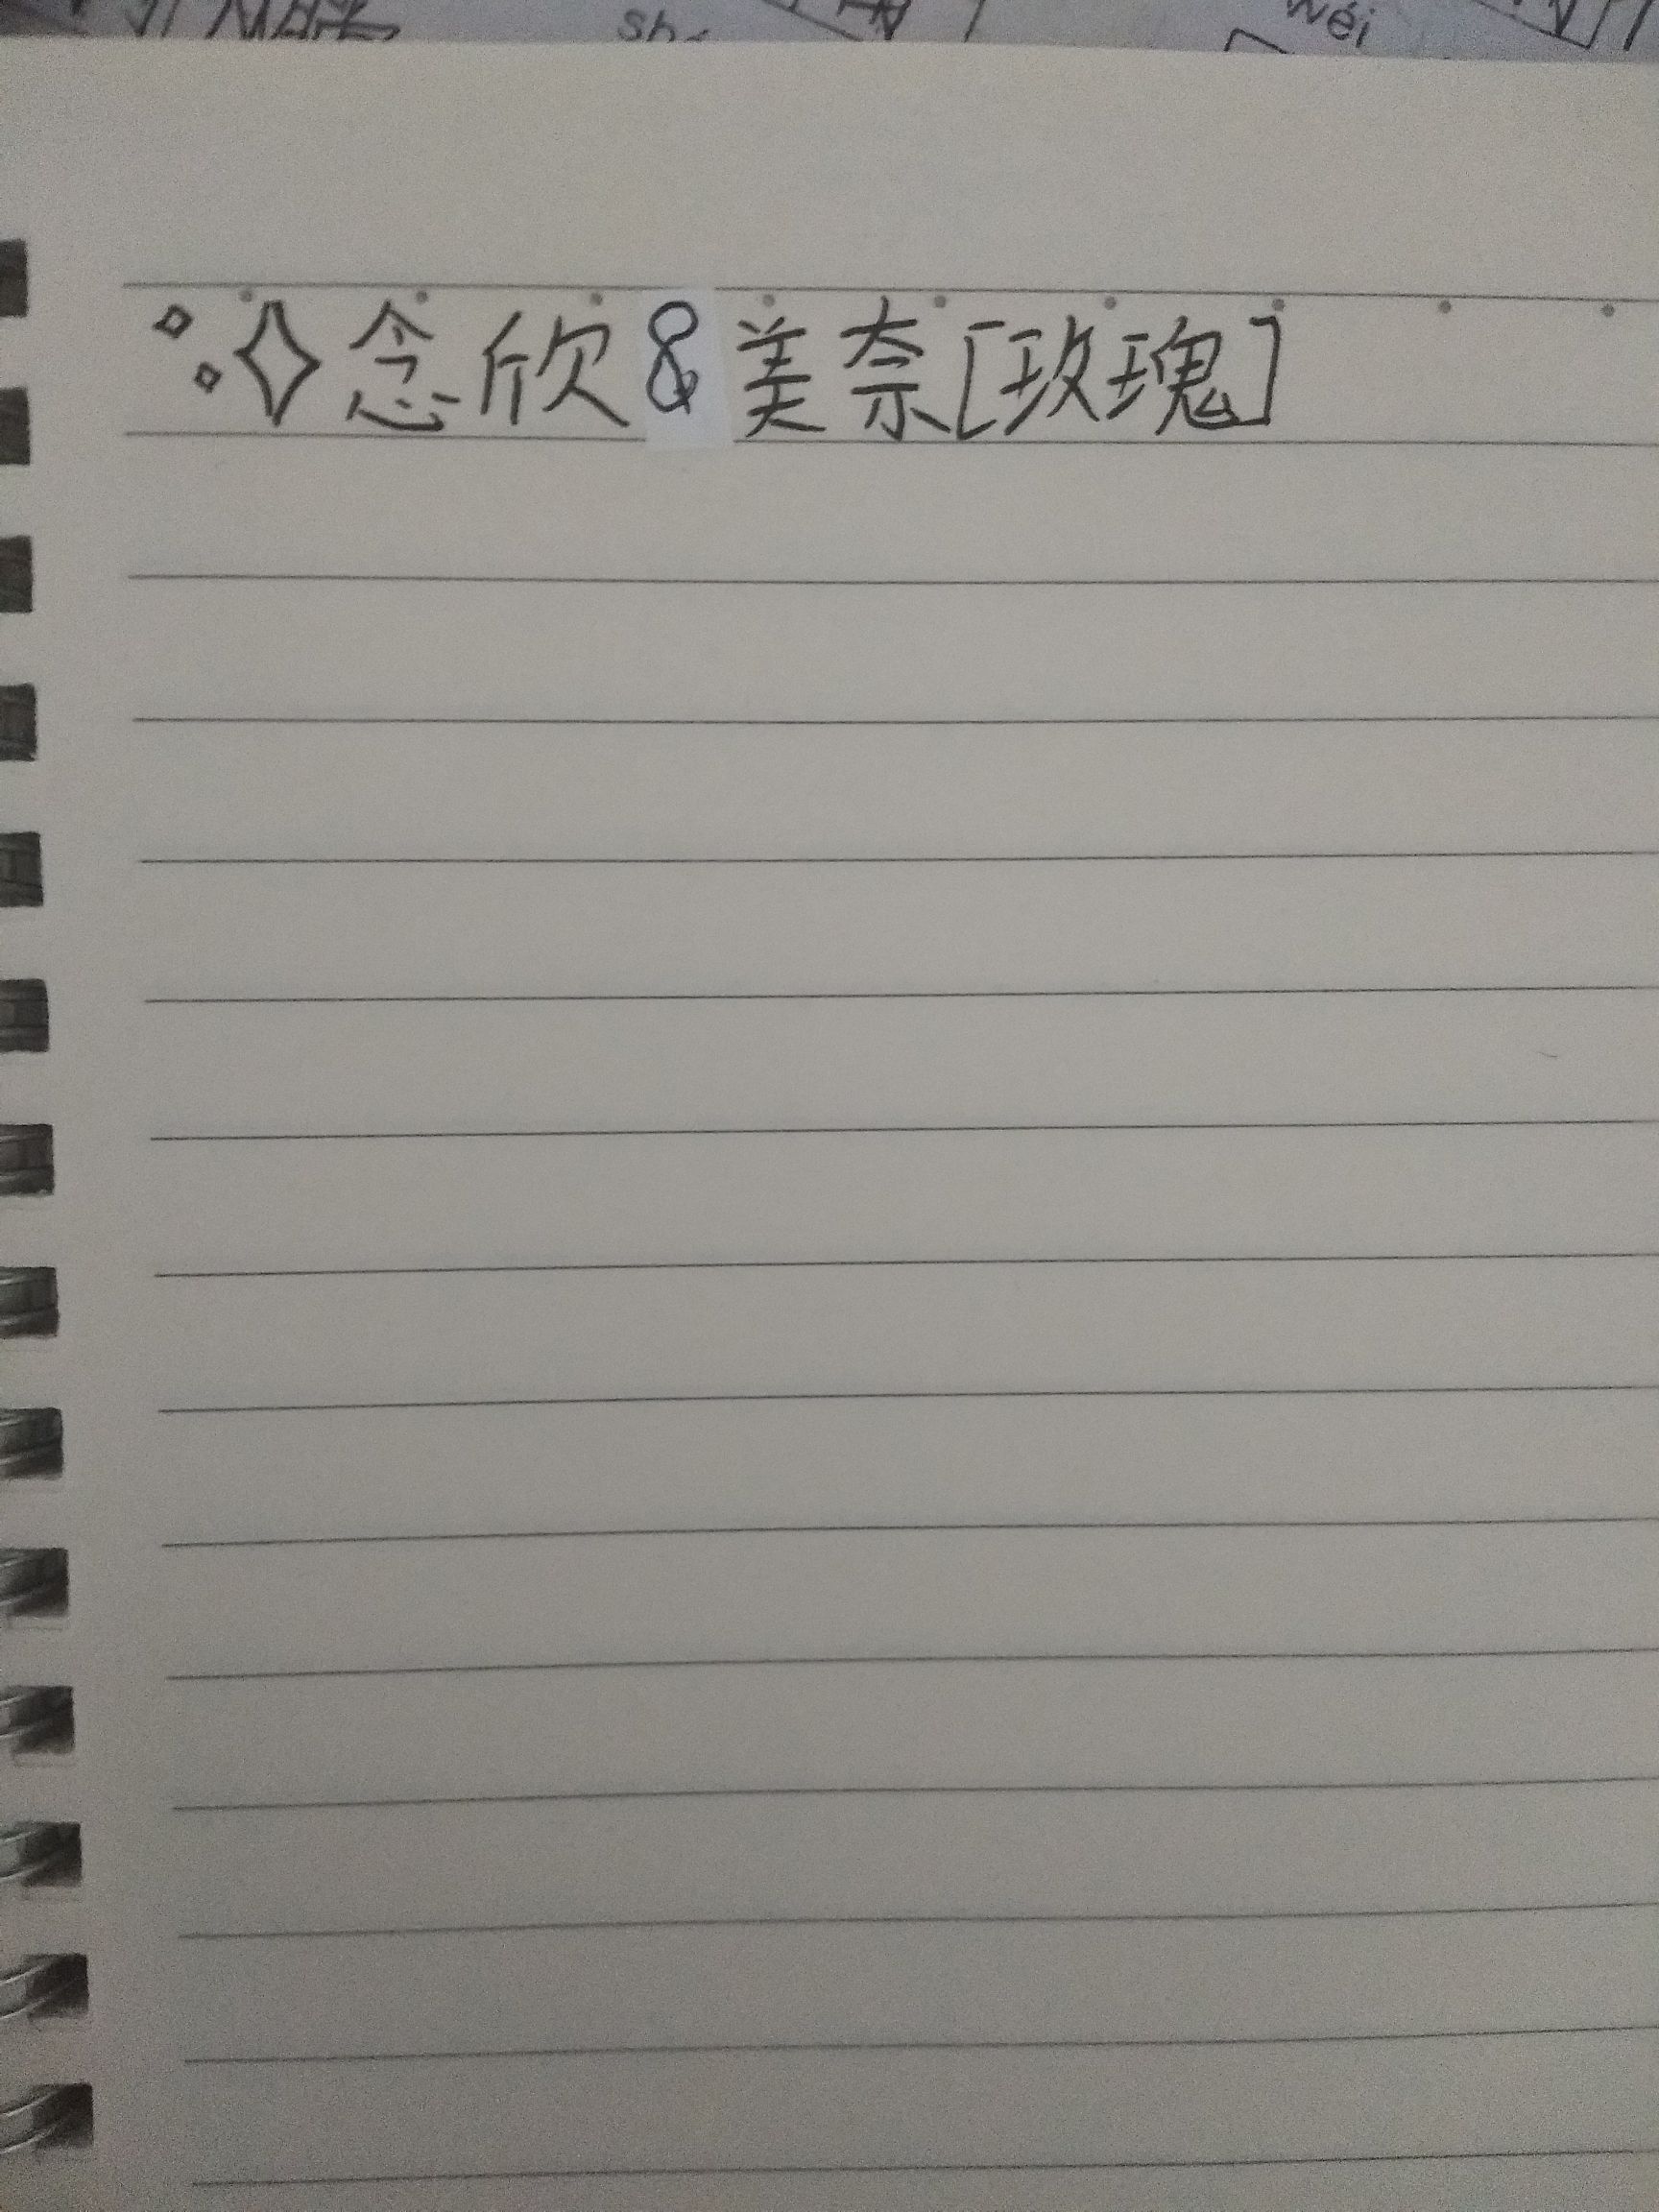 shé wéi
念欣&美奈[玫瑰]